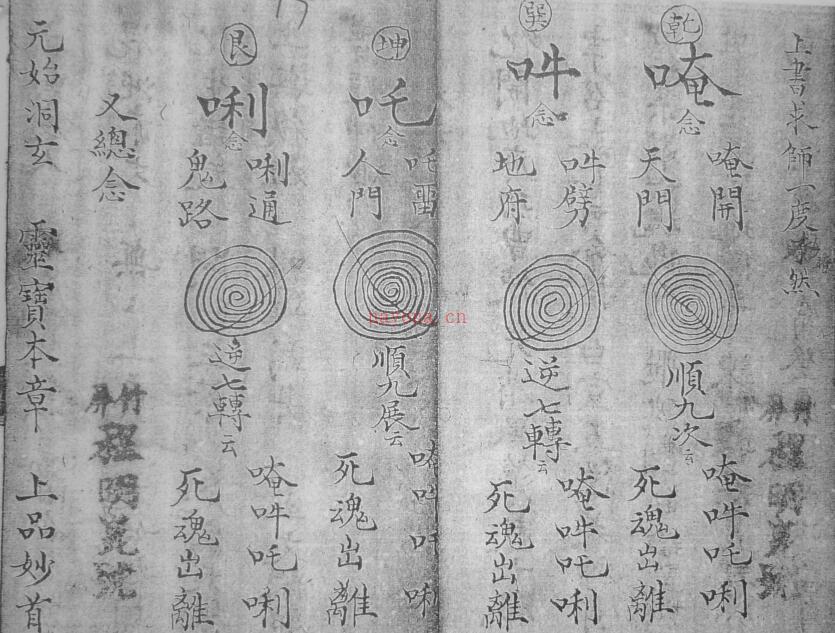 上書求師一度
乾
唵
念
唵開
天門
順九次云
唵吽吒唎
死魂出離
巽
吽
念
吽劈
地府
逆七轉云
唵吽吒唎
死魂出離
坤
吒
念
吒雷
人門
順九展云
唵吽吒唎
死魂出離
艮
唎
念
唎通
鬼路
逆七轉云
唵吽吒唎
死魂出離
又總念
元始洞玄 靈寶本章 上品妙首